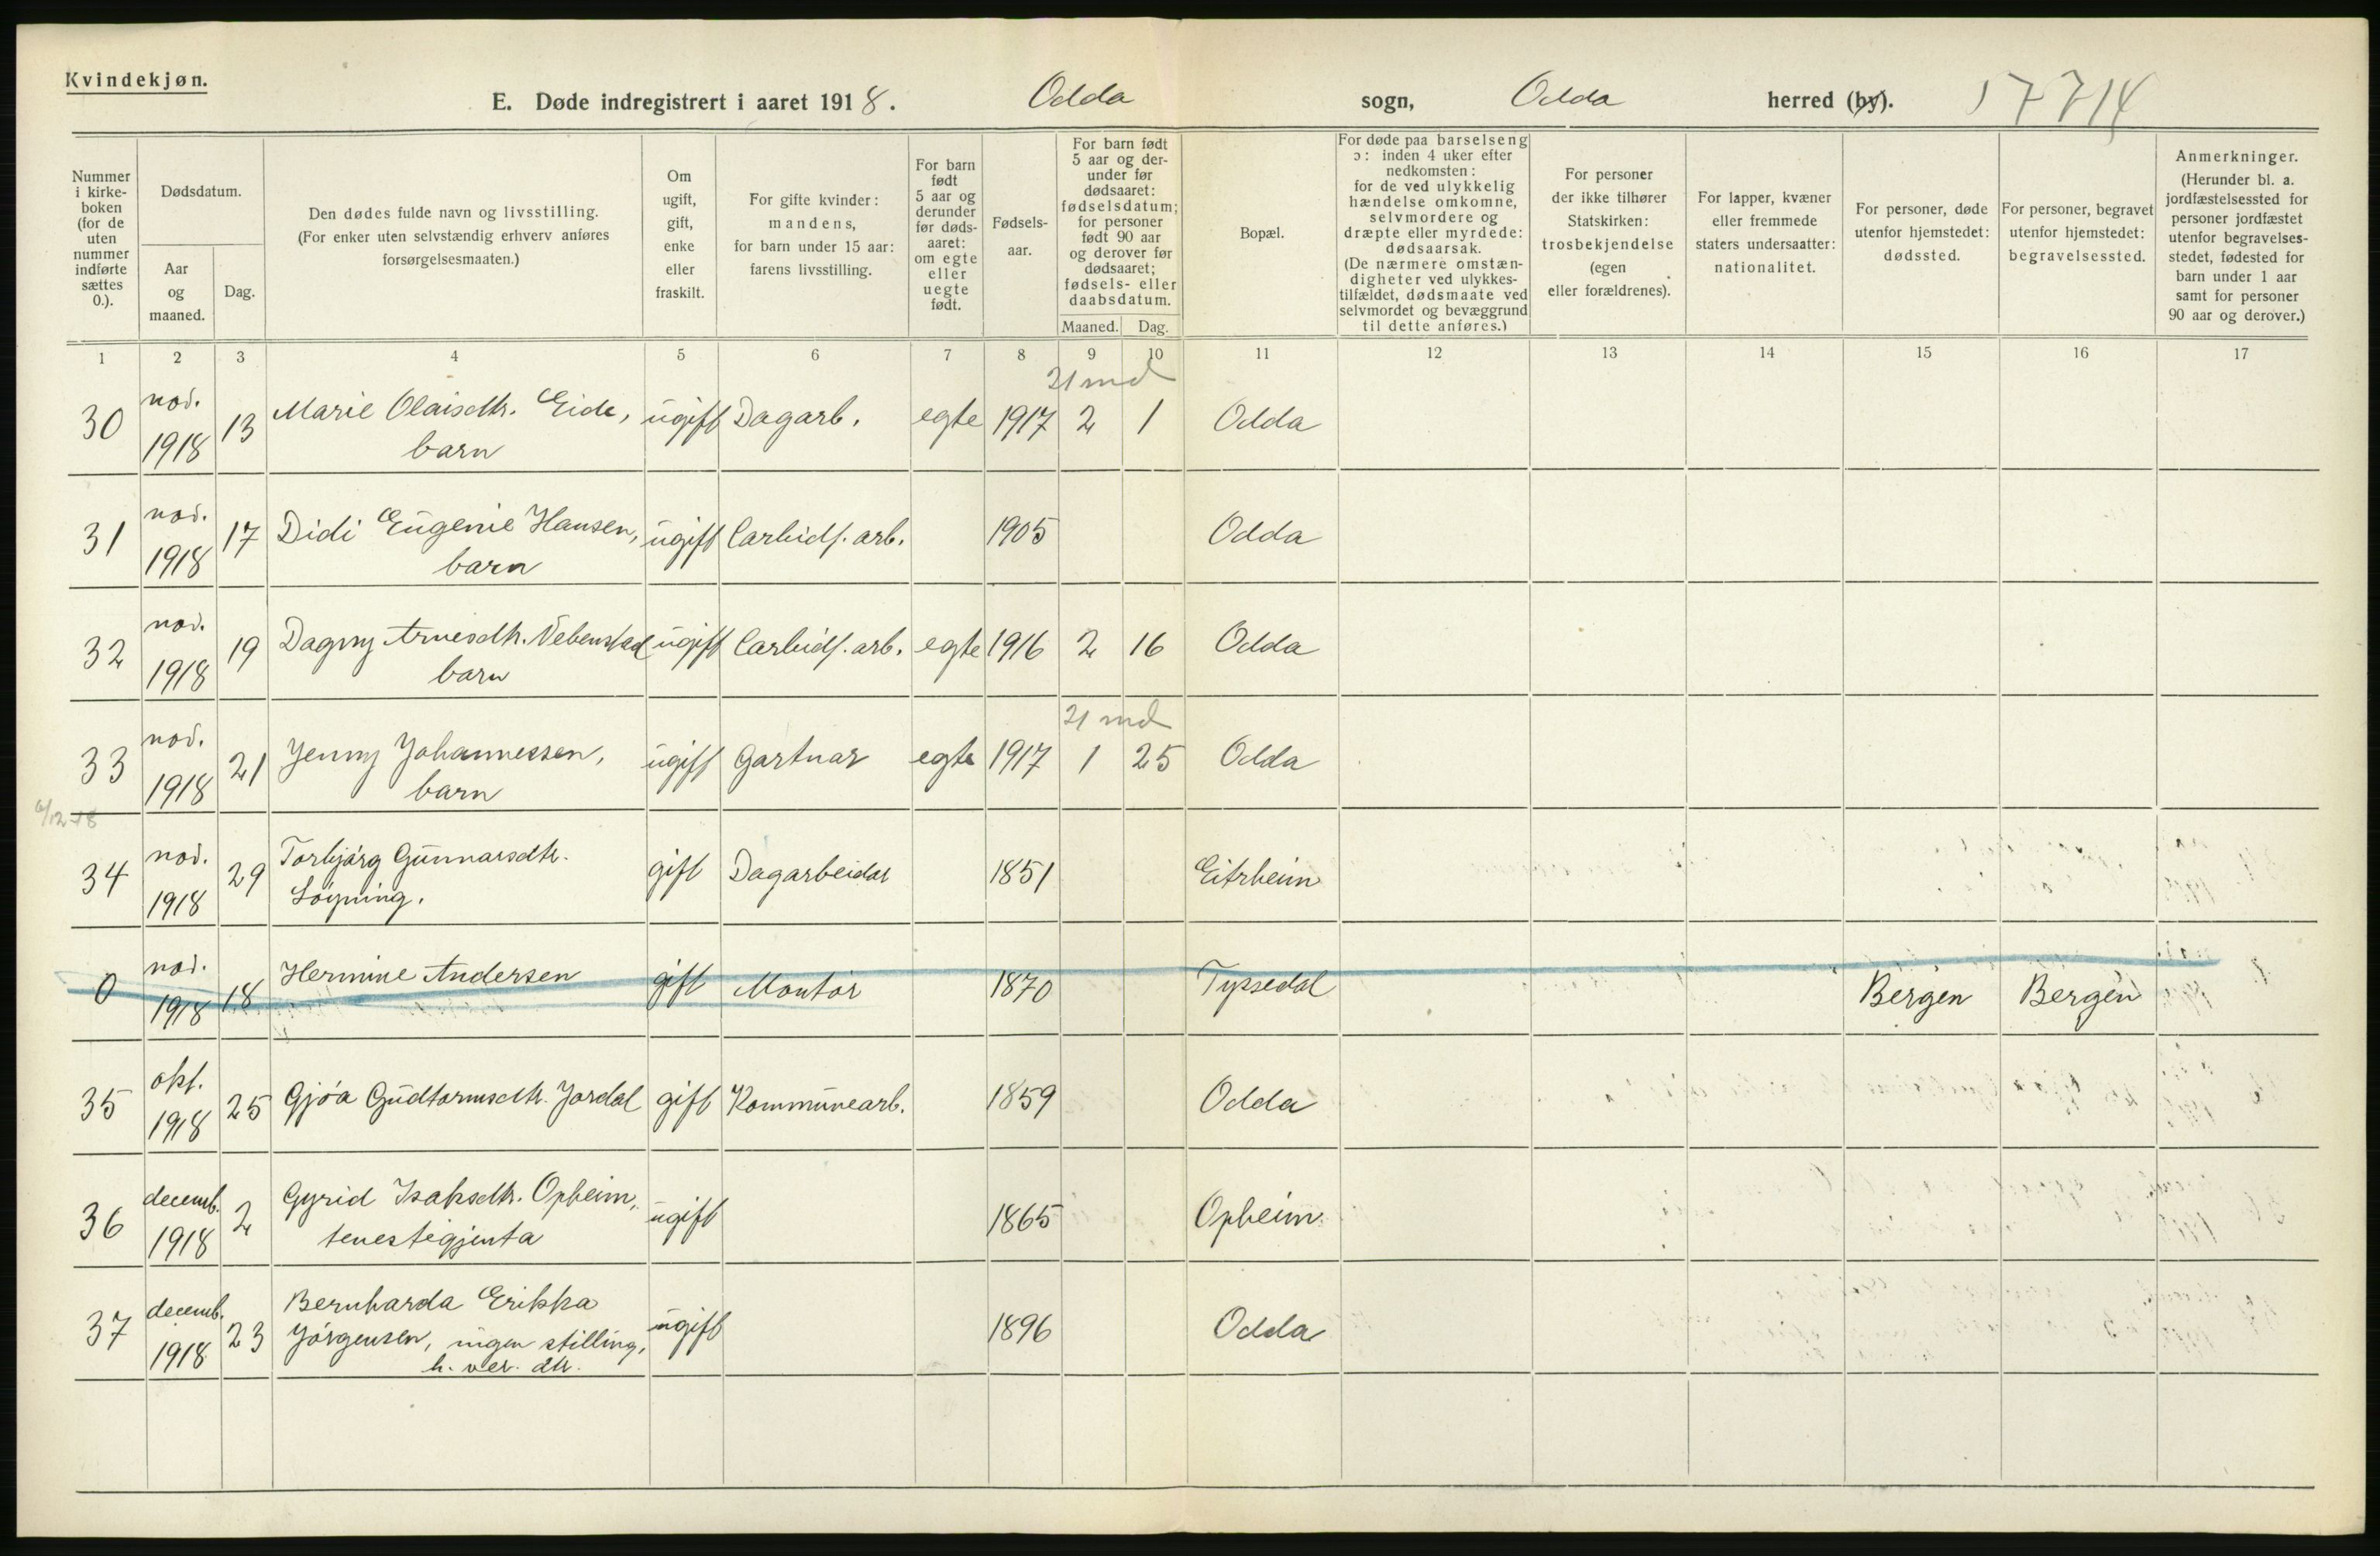 Kvindekjøn.
E. Døde indregistrert i aaret 1918. Odda sogn, Odda herred (by). 17714
Nummer i kirke-boken (for de uten nummer indførte sættes 0.).
Dødsdatum.
Aar og maaned.
Dag.
Den dødes fulde navn og livsstilling.
(For enker uten selvstændig erhverv anføres
forsørgelsesmaaten.)
Om ugift, gift, enke eller fraskilt.
For gifte kvinder:
mandens,
for barn under 15 aar:
farens livsstilling.
For barn født 5 aar og derunder før døds-aaret: om egte eller uegte født.
Fødsels-aar.
For barn født 5 aar og der-under før dødsaaret: fødselsdatum; for personer født 90 aar og derover før dødsaaret; fødsels- eller daabsdatum.
Maaned. Dag.
Bopæl.
For døde paa barselseng
ɔ: inden 4 uker efter
nedkomsten:
for de ved ulykkelig
hændelse omkomne,
selvmordere og
dræpte eller myrdede:
dødsaarsak.
(De nærmere omstæn-
digheter ved ulykkes-
tilfældet, dødsmaate ved
selvmordet og bevæggrund
til dette anføres.)
For personer
der ikke tilhører
Statskirken:
trosbekjendelse
(egen
eller forældrenes).
For lapper, kvæner
eller fremmede
staters undersaatter:
nationalitet.
For personer, døde
utenfor hjemstedet:
dødssted.
For personer, begravet
utenfor hjemstedet:
begravelsessted.
Anmerkninger.
(Herunder bl. a.
jordfæstelsessted for
personer jordfæstet
utenfor begravelses-
stedet, fødested for
barn under 1 aar
samt for personer
90 aar og derover.)
1 2 3 4 5 6 7 8 9 10 11 12 13 14 15 16 17
21 md
30 nov. 1918 13 Marie Olaisdtr. Eide, barn ugift Dagarb. egte 1917 2 1 Odda
31 nov. 1918 17 Didi Eugenie Hansen, barn ugift Carbidf. arb. 1905 Odda
32 nov. 1918 19 Dagny Arnesdtr. barn ugift Carbidf. arb. egte 1916 2 16 Odda
21 md
33 nov. 1918 21 Jenny Johannessen, barn ugift Gartnar egte 1917 1 25 Odda
6/12-18
34 nov. 1918 29 Torbjørg Gunnarsdtr. Løyning. gift Dagarbeidar 1851 Eitrheim
0 nov. 1918 18 Hermine Andersen gift Montør 1870 Tyssedal Bergen Bergen
35 okt. 1918 25 Gjøa Gudtormsdtr. Jordal gift Kommunearb. 1859 Odda
36 decemb. 1918 2 Gyrid Isaksdtr. Opheim, tenestegjenta ugift 1865 Opheim
37 decemb. 1918 23 Bernharda Erikka Jørgensen, ingen stilling, h. ver. dtr. ugift 1896 Odda